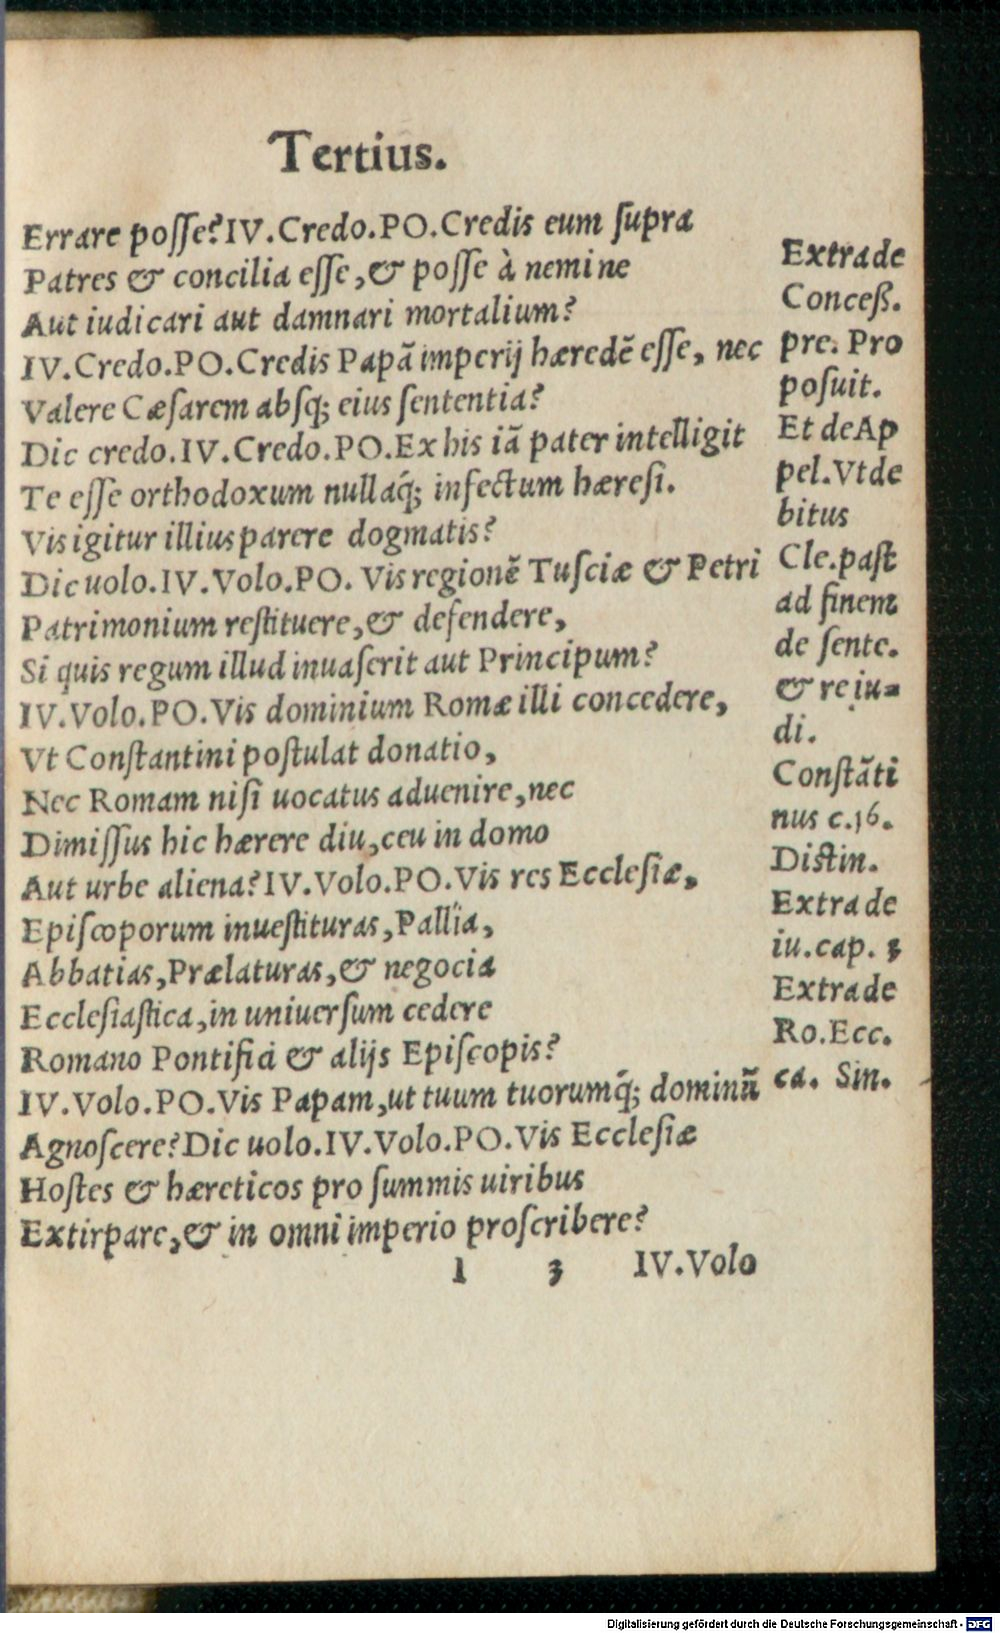 Tertius.
Errare posse? IV. Credo. PO. Credis eum supra
Patres & concilia esse, & posse à nemine
Aut iudicari aut damnari mortalium?
IV. Credo. PO. Credis Papã imperij hæredẽ esse, nec
Valere Cæsarem absq; eius sententia?
Dic credo. IV. Credo. PO. Ex his iã pater intelligit
Te esse orthodoxum nullaq́; infectum hæresi.
Vis igitur illius parere dogmatis?
Dic uolo. IV. Volo. PO. Vis regionẽ Tusciæ & Petri
Patrimonium restituere, & defendere,
Si quis regum illud inuaserit aut Principum?
IV. Volo. PO. Vis dominium Romæ illi concedere,
Vt Constantini postulat donatio,
Nec Romam nisi uocatus aduenire, nec
Dimissus hic hærere diu, ceu in domo
Aut urbe aliena? IV. Volo. PO. Vis res Ecclesiæ,
Episcoporum inuestituras, Pallia,
Abbatias, Prælaturas, & negocia
Ecclesiastica, in uniuersum cedere
Romano Pontifici & alijs Episcopis?
IV. Volo. PO. Vis Papam, ut tuum tuorumq́; dominũ
Agnoscere? Dic uolo. IV. Volo. PO. Vis Ecclesiæ
Hostes & hæreticos pro summis uiribus
Extirpare, & in omni imperio proscribere?
l 3 IV. Volo
Extra de
Conceß.
pre. Pro
posuit.
Et de Ap
pel. Vt de
bitus
Cle. past
ad finem
de sente.
& re iu=
di.
Constãti
nus c. 16.
Distin.
Extra de
iu. cap. 3
Extra de
Ro. Ecc.
ca. Sin.
Digitalisierung gefördert durch die Deutsche Forschungsgemeinschaft - DFG